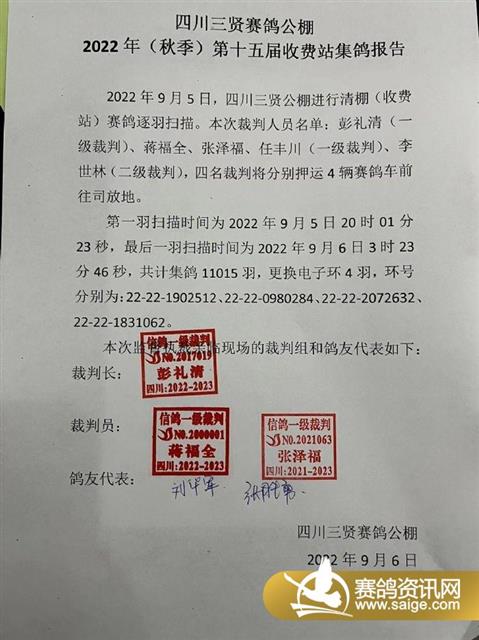 四川三贤赛鸽公棚
2022年（秋季）第十五届收费站集鸽报告
2022年9月5日，四川三贤公棚进行清棚（收费
站）赛鸽逐羽扫描。本次裁判人员名单：彭礼清（一
级裁判）、蒋福全、张泽福、任丰川（一级裁判）、李
世林（二级裁判），四名裁判将分别押运4辆赛鸽车前
往司放地。
第一羽扫描时间为2022年9月5日20时01分
23秒，最后一羽扫描时间为2022年9月6日3时23
分46秒，共计集鸽11015羽，更换电子环4羽，环号
分别为:22-22-1902512、22-22-0980284、22-22-2072632、
22-22-1831062。
本次监督执裁亲临现场的裁判组和鸽友代表如下：
裁判长：
信鸽一级裁判
NO.2017019
彭礼清
四川:2022-2023
裁判员：
信鸽一级裁判
NO.2000001
蒋福全
四川:2022-2023
信鸽一级裁判
NO.2021063
张泽福
四川:2021-2023
鸽友代表：
四川三贤赛鸽公棚
2022年9月6日
赛鸽资讯网
www.saige.com